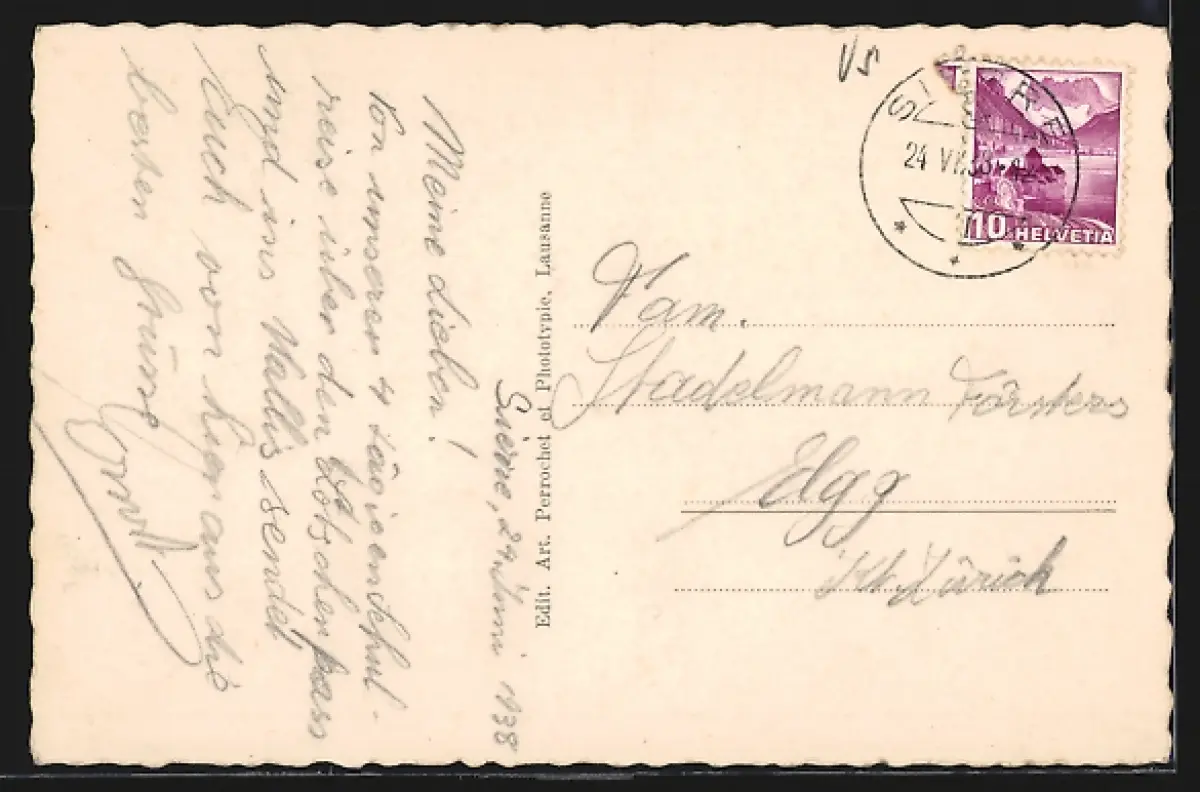 VS
SIERRE
24 VI. 38
10 HELVETIA
Sierre, 24. Juni 1938
Meine Lieben!
Von unserer 4 tägigen Schul-
reise über den Lötschenpass
und ins Wallis sendet
Euch von hier aus die
besten Grüsse
Edit. Art. Perrochet et Phototypie, Lausanne
Fam.
Stadelmann Försters
Elgg
Kt. Zürich